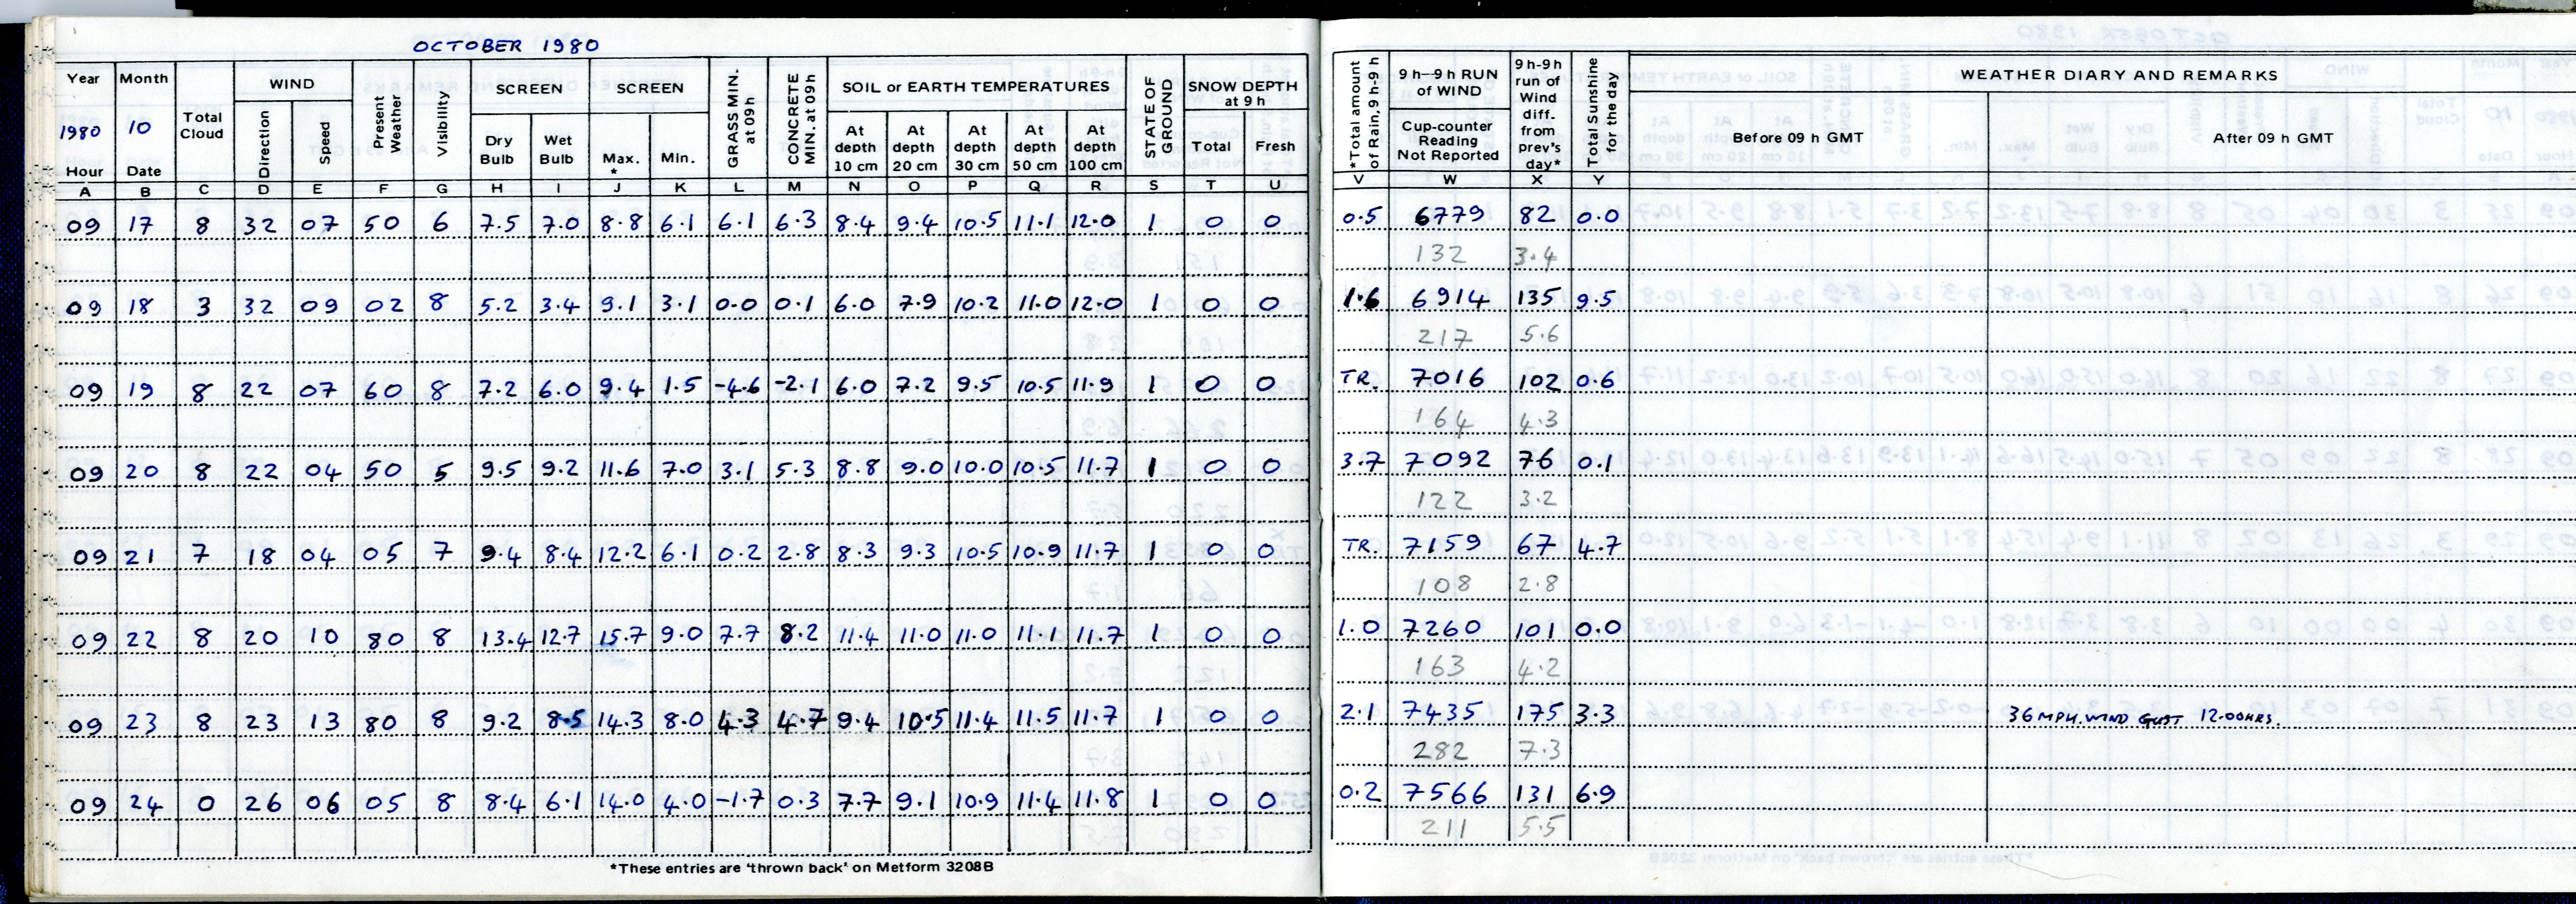 OCTOBER 1980
Year Month Total Cloud WIND Direction Speed Present Weather Visibility SCREEN Dry Bulb Wet Bulb SCREEN Max. * Min. GRASS MIN. at 09 h CONCRETE MIN. at 09 h SOIL or EARTH TEMPERATURES At depth 10 cm At depth 20 cm At depth 30 cm At depth 50 cm At depth 100 cm STATE OF GROUND SNOW DEPTH at 9 h Total Fresh *Total amount of Rain, 9 h-9 h 9 h—9 h RUN of WIND Cup-counter Reading Not Reported 9h-9h run of Wind diff. from prev's day* Total Sunshine for the day WEATHER DIARY AND REMARKS Before 09 h GMT After 09 h GMT
1980 10
Hour Date
A B C D E F G H I J K L M N O P Q R S T U V W X Y
09 17 8 32 07 50 6 7.5 7.0 8.8 6.1 6.1 6.3 8.4 9.4 10.5 11.1 12.0 1 0 0 0.5 6779 82 0.0
132 3.4
09 18 3 32 09 02 8 5.2 3.4 9.1 3.1 0.0 0.1 6.0 7.9 10.2 11.0 12.0 1 0 0 1.6 6914 135 9.5
217 5.6
09 19 8 22 07 60 8 7.2 6.0 9.4 1.5 -4.6 -2.1 6.0 7.2 9.5 10.5 11.9 1 0 0 TR. 7016 102 0.6
164 4.3
09 20 8 22 04 50 5 9.5 9.2 11.6 7.0 3.1 5.3 8.8 9.0 10.0 10.5 11.7 1 0 0 3.7 7092 76 0.1
122 3.2
09 21 7 18 04 05 7 9.4 8.4 12.2 6.1 0.2 2.8 8.3 9.3 10.5 10.9 11.7 1 0 0 TR. 7159 67 4.7
108 2.8
09 22 8 20 10 80 8 13.4 12.7 15.7 9.0 7.7 8.2 11.4 11.0 11.0 11.1 11.7 1 0 0 1.0 7260 101 0.0
163 4.2
09 23 8 23 13 80 8 9.2 8.5 14.3 8.0 4.3 4.7 9.4 10.5 11.4 11.5 11.7 1 0 0 2.1 7435 175 3.3 36 MPH. WIND GUST 12.00HRS.
282 7.3
09 24 0 26 06 05 8 8.4 6.1 14.0 4.0 -1.7 0.3 7.7 9.1 10.9 11.4 11.8 1 0 0 0.2 7566 131 6.9
211 5.5
*These entries are 'thrown back' on Metform 3208B